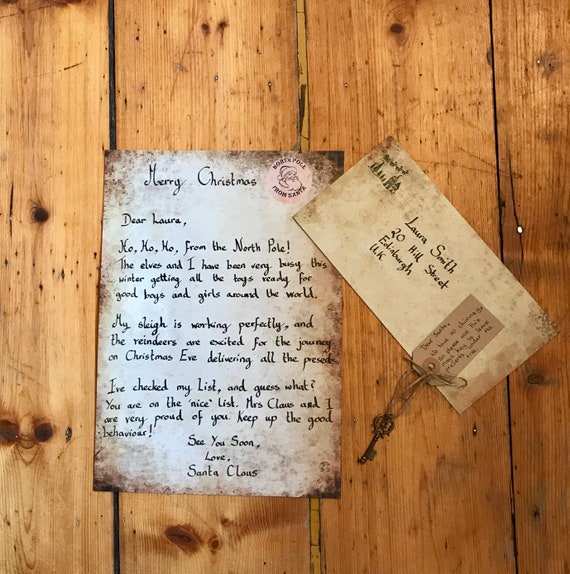 Merry Christmas
NORTH POLE
FROM SANTA
Dear Laura,
Ho, Ho, Ho, From the North Pole!
The elves and I have been very busy this
winter getting all the toys ready for
good boys and girls around the world.
My sleigh is working perfectly, and
the reindeers are excited for the journey
on Christmas Eve delivering all the presents
I've checked my List, and guess what?
You are on the 'nice' list. Mrs Claus and I
are very proud of you. Keep up the good
behaviour!
See You Soon,
Love,
Santa Claus
Laura Smith
20 Hill Street
Edinburgh
U.K
Dear Santa,
we have no chimney,
so please use this
magic key to leave
presents under the
tree